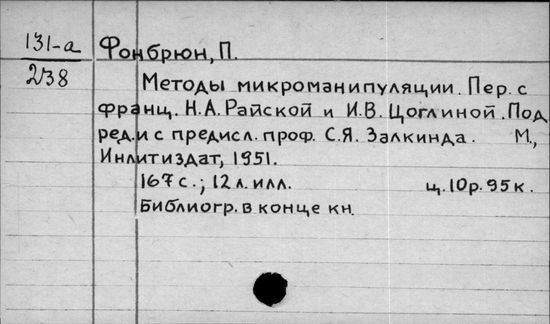 131-а Фонбрюн, П.
238
Методы микроманипуляции. Пер. с
франц. Н.А. Райской и И.В. Цоглиной. Под
ред. и с предисл. проф. С.Я. Залкинда. М.,
Инлитиздат, 1951.
167 с.; 12 л. илл. ц. 10 р. 95 к.
Библиогр. в конце кн.